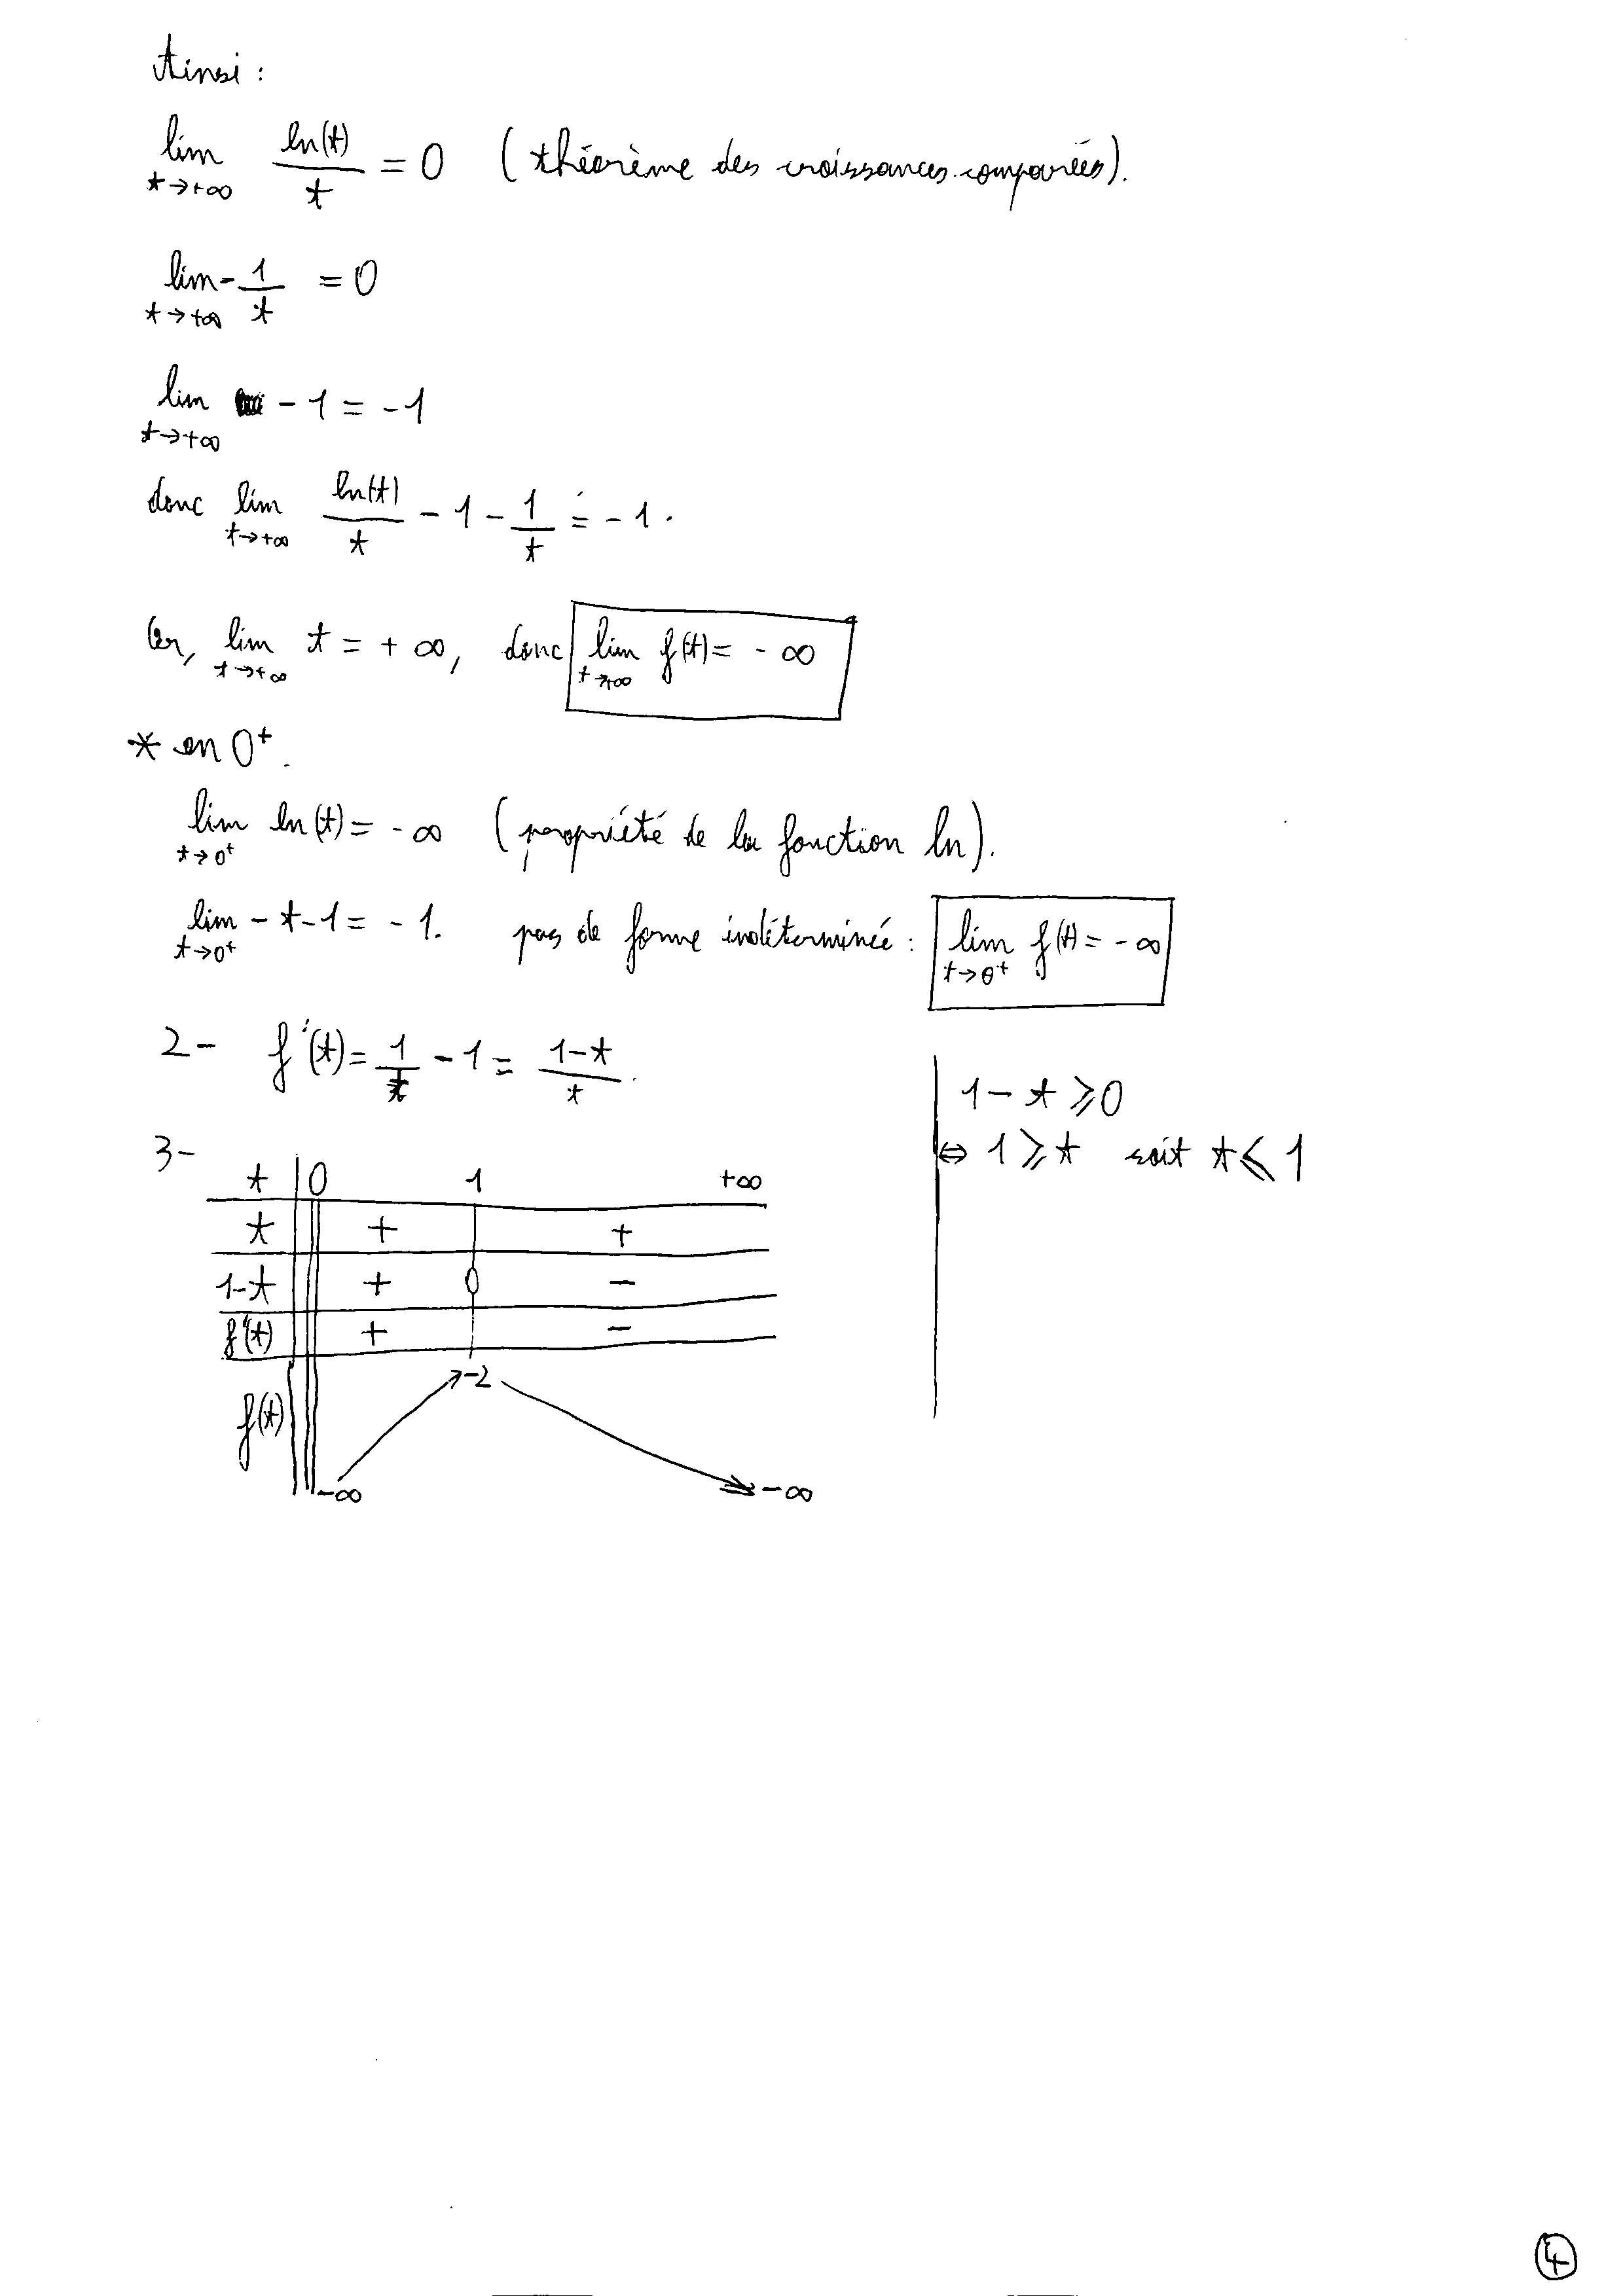 Ainsi :
lim t→+∞ ln(t)/t = 0 (théorème des croissances comparées).
lim t→+∞ - 1/t = 0
lim t→+∞ - 1 = - 1
donc lim t→+∞ ln(t)/t - 1 - 1/t = - 1.
Or, lim t→+∞ t = + ∞, donc lim t→+∞ f(t) = - ∞
* en 0⁺.
lim t→0⁺ ln(t) = - ∞ (propriété de la fonction ln).
lim t→0⁺ - t - 1 = - 1. pas de forme indéterminée : lim t→0⁺ f(t) = - ∞
2- f'(t) = 1/t - 1 = (1-t)/t.
1 - t ⩾ 0
⇔ 1 ⩾ t soit t ⩽ 1
3-
t 0 1 +∞
t + +
1-t + 0 -
f'(t) + -
f(t) -∞ -2 -∞
4